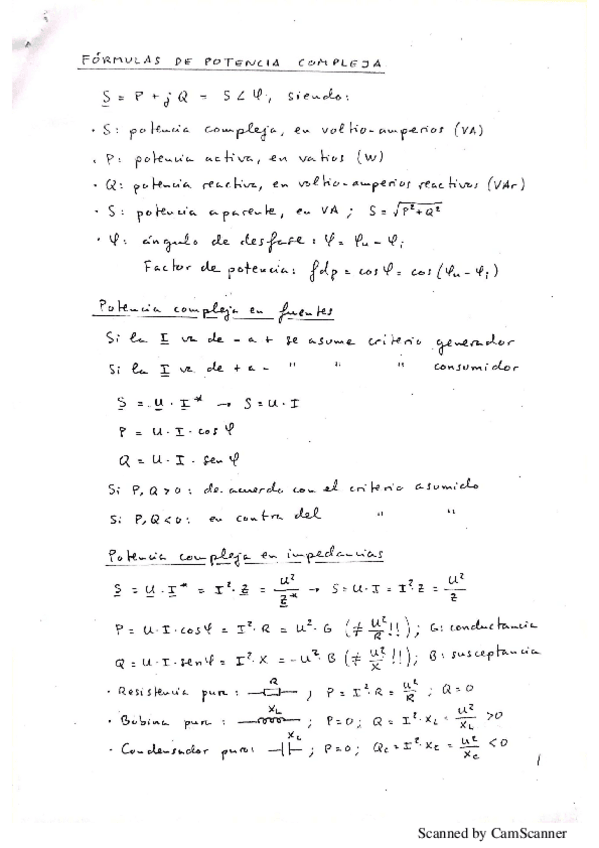 FÓRMULAS DE POTENCIA COMPLEJA
S = P + j Q = S∠φ, siendo:
· S: potencia compleja, en voltio-amperios (VA)
· P: potencia activa, en vatios (W)
· Q: potencia reactiva, en voltio-amperios reactivos (VAr)
· S: potencia aparente, en VA ; S = √P²+Q²
· φ: ángulo de desfase : φ = φu - φi
Factor de potencia: fdp = cos φ = cos (φu - φi)
Potencia compleja en fuentes
Si la I va de - a + se asume criterio generador
Si la I va de + a - " " " consumidor
S = U · I* → S = U · I
P = U · I · cos φ
Q = U · I · sen φ
Si P, Q > 0 : de acuerdo con el criterio asumido
Si P, Q < 0 : en contra del " "
Potencia compleja en impedancias
S = U · I* = I² · Z = U²/Z* → S = U · I = I² · Z = U²/Z
P = U · I · cos φ = I² · R = U² · G (≠ U²/R !!) ; G: conductancia
Q = U · I · sen φ = I² · X = -U² · B (≠ U²/X !!) ; B: susceptancia
· Resistencia pura : R ; P = I² · R = U²/R ; Q = 0
· Bobina pura : XL ; P = 0 ; Q = I² · XL = U²/XL > 0
· Condensador puro : Xc ; P = 0 ; Qc = I² · Xc = U²/Xc < 0
1
Scanned by CamScanner